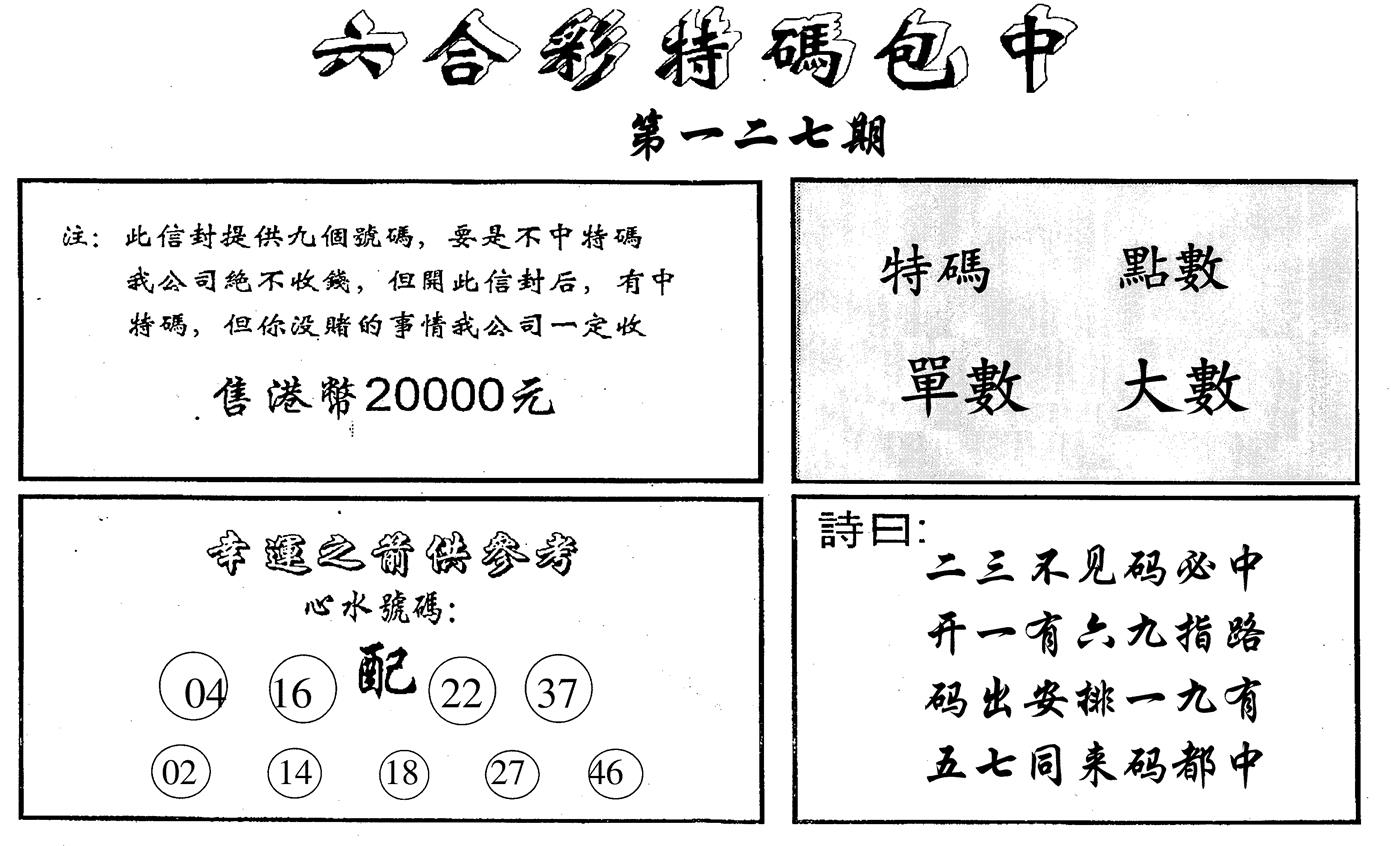 六合彩特碼包中
第一二七期
注：此信封提供九個號碼，要是不中特碼
我公司絕不收錢，但開此信封后，有中
特碼，但你没賭的事情我公司一定收
售港幣20000元
特碼 點數
單數 大數
幸運之箭供參考
心水號碼：
04 16 配 22 37
02 14 18 27 46
詩曰：
二三不见码必中
开一有六九指路
码出安排一九有
五七同来码都中